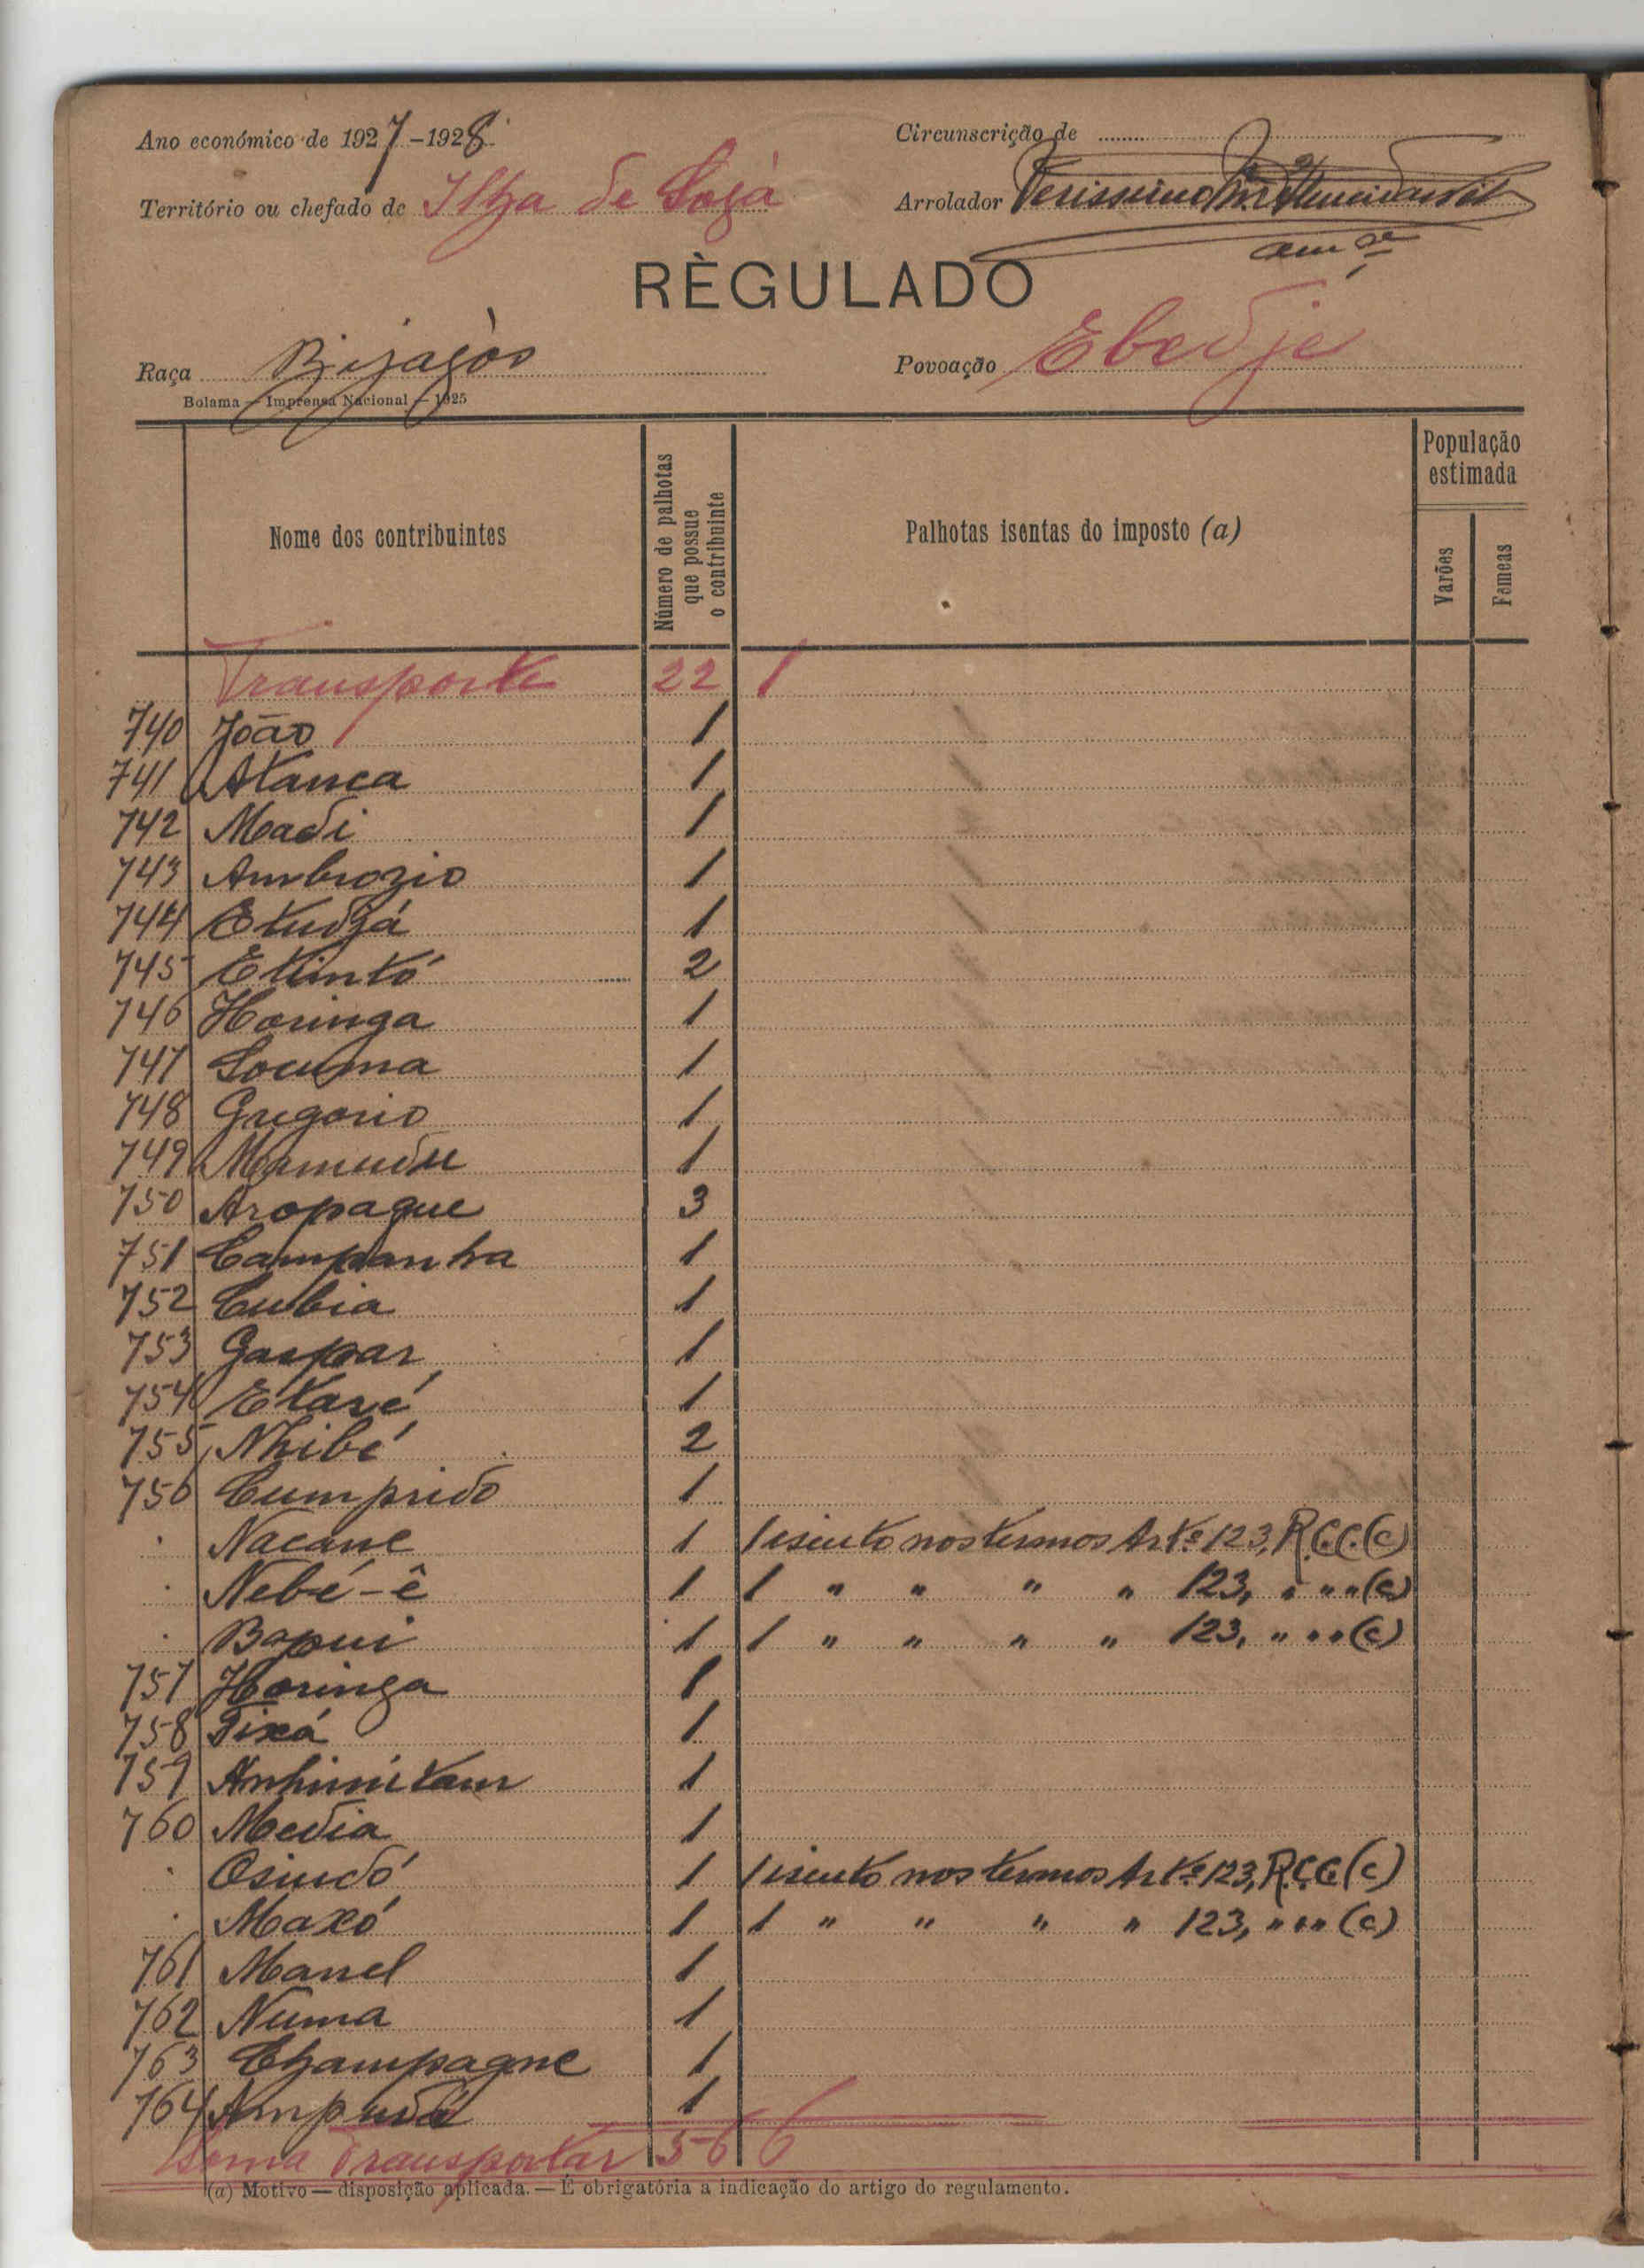 Ano económico de 1927-1928
Circunscrição de
Território ou chefado de Ilha de Sogá
Arrolador Verissimo
RÈGULADO
Raça Bijagòs
Povoação Ebedjé
Bolama — Imprensa Nacional — 1925
Nome dos contribuintes
Número de palhotas que possue o contribuinte
Palhotas isentas do imposto (a)
População estimada
Varões
Fêmeas
Transporte 22 1
740 João 1
741 Atanca 1
742 Madi 1
743 Ambrozio 1
744 Etudjá 1
745 Etintó 2
746 Horinga 1
747 Locuma 1
748 Gregorio 1
749 Mamudu 1
750 Aropague 3
751 Campanha 1
752 Cubia 1
753 Gaspar 1
754 Etaré 1
755 Nhibé 2
756 Cumprido 1
Nacane 1 1 isento nos termos Artº 123, R.C.C. (c)
Nebé-ê 1 1 " " " " 123, " " " (c)
Bapui 1 1 " " " " 123, " " " (c)
757 Horinga 1
758 Tixá 1
759 1
760 Media 1
Osindó 1 1 isento nos termos Artº 123, R.C.C. (c)
Maxó 1 1 " " " " 123, " " " (c)
761 Manel 1
762 Numa 1
763 Champagne 1
764 Ampudá 1
Soma Transportar 56 6
(a) Motivo — disposição aplicada. — É obrigatória a indicação do artigo do regulamento.